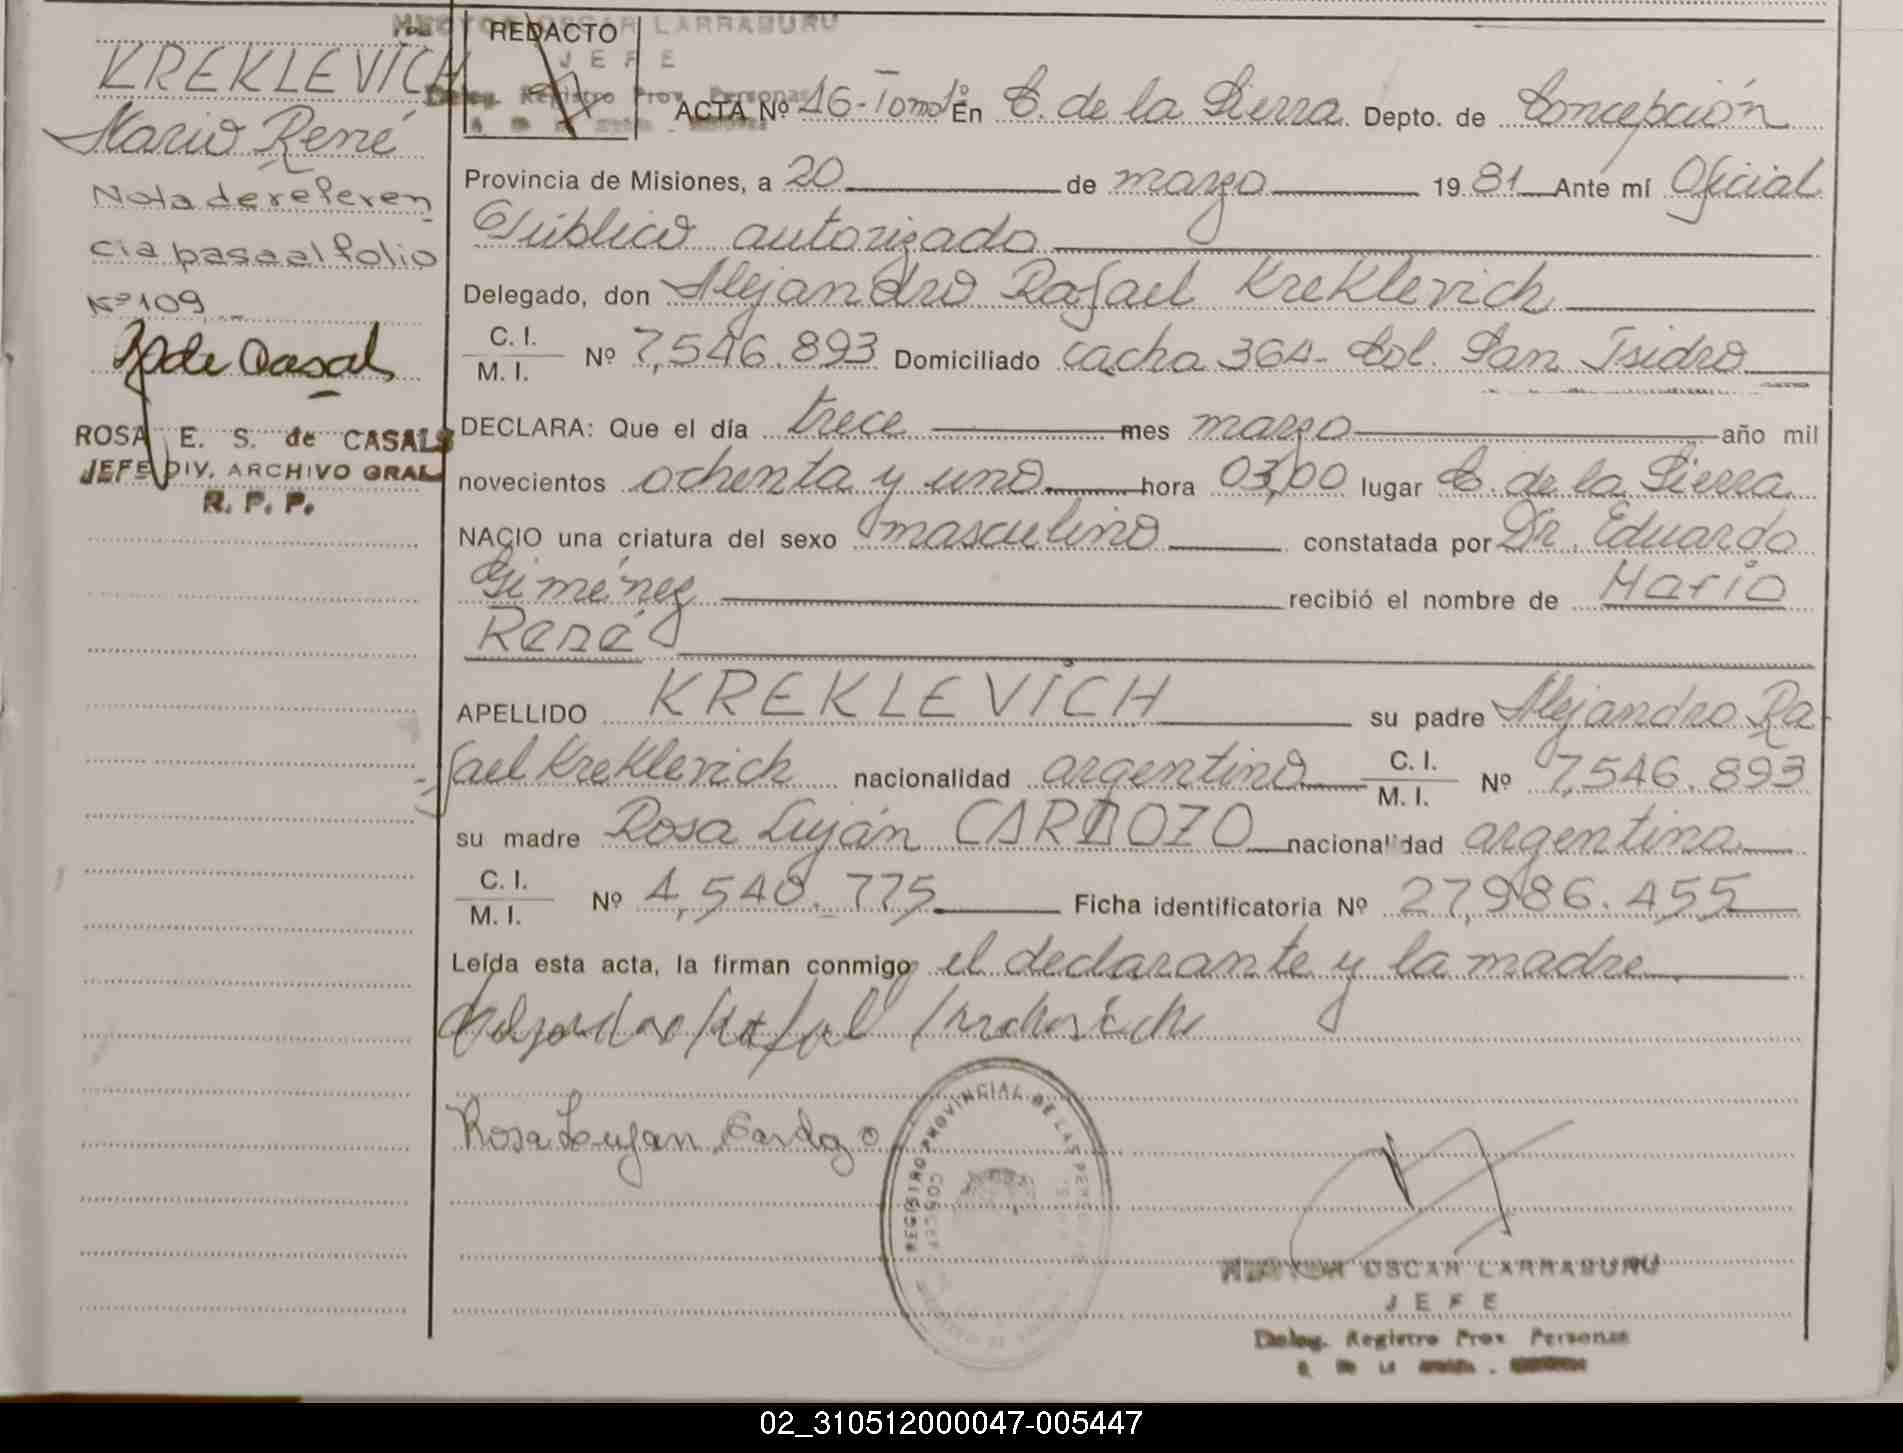 HECTOR OSCAR LARRABURU
JEFE
Deleg. Registro Prov. Personas
REDACTO
KREKLEVICH
Mario René
Nota de referen
cia pasa al folio
Nº 109
R de Casals
ROSA E. S. de CASALS
JEFE DIV. ARCHIVO GRAL
R. P. P.
ACTA Nº 16-Tomo 1º En C. de la Sierra Depto. de Concepción
Provincia de Misiones, a 20 de marzo 1981 Ante mí Oficial
Público autorizado
Delegado, don Alejandro Rafael Kreklevich
C. I.
M. I. Nº 7,546.893 Domiciliado cacha 364- Col. San Isidro
DECLARA: Que el día trece mes marzo año mil
novecientos ochenta y uno hora 03,00 lugar C. de la Sierra
NACIO una criatura del sexo masculino constatada por Dr. Eduardo
Giménez recibió el nombre de Mario
René
APELLIDO KREKLEVICH su padre Alejandro Ra-
fael Kreklevich nacionalidad argentino C. I. M. I. Nº 7,546.893
su madre Rosa Luján CARDOZO nacionalidad argentina
C. I.
M. I. Nº 4,540.775 Ficha identificatoria Nº 27,986.455
Leída esta acta, la firman conmigo el declarante y la madre
Alejandro Rafael Kreklevich
Rosa Lujan Cardozo
REGISTRO PROVINCIAL DE LAS PERSONAS
HECTOR OSCAR LARRABURU
JEFE
Deleg. Registro Prov Personas
02_310512000047-005447